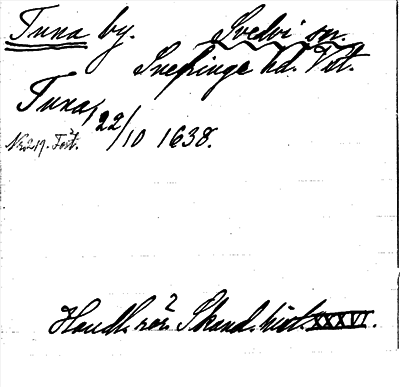 Tuna by. Svedvi sn.
Snefringe hd. Vstl.
Tuna, 22/10 1638.
Handl. rör. Skand. hist. XXXVI.